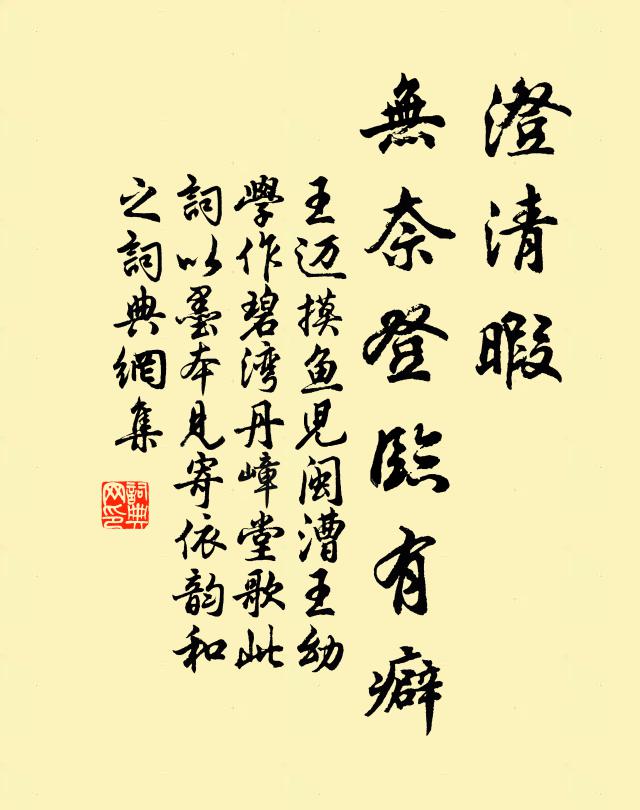 澄清暇
無奈登臨有癖
王迈摸鱼児闽漕王幼
學作碧湾丹嶂堂歌此
詞以墨本见寄依韵和
之詞典網集
詞典
网印